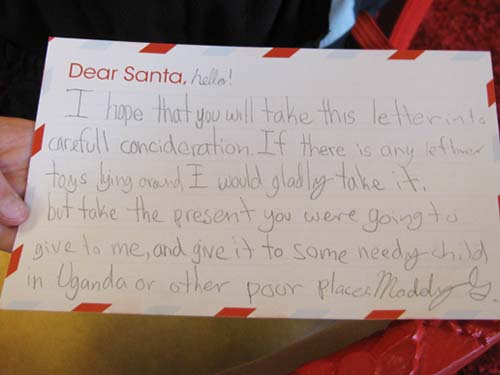 Dear Santa, hello!
I hope that you will take this letter into
carefull concideration. If there is any leftover
toys lying around, I would gladly take it.
but take the present you were going to
give to me, and give it to some needy child
in Uganda or other poor places. Maddy G